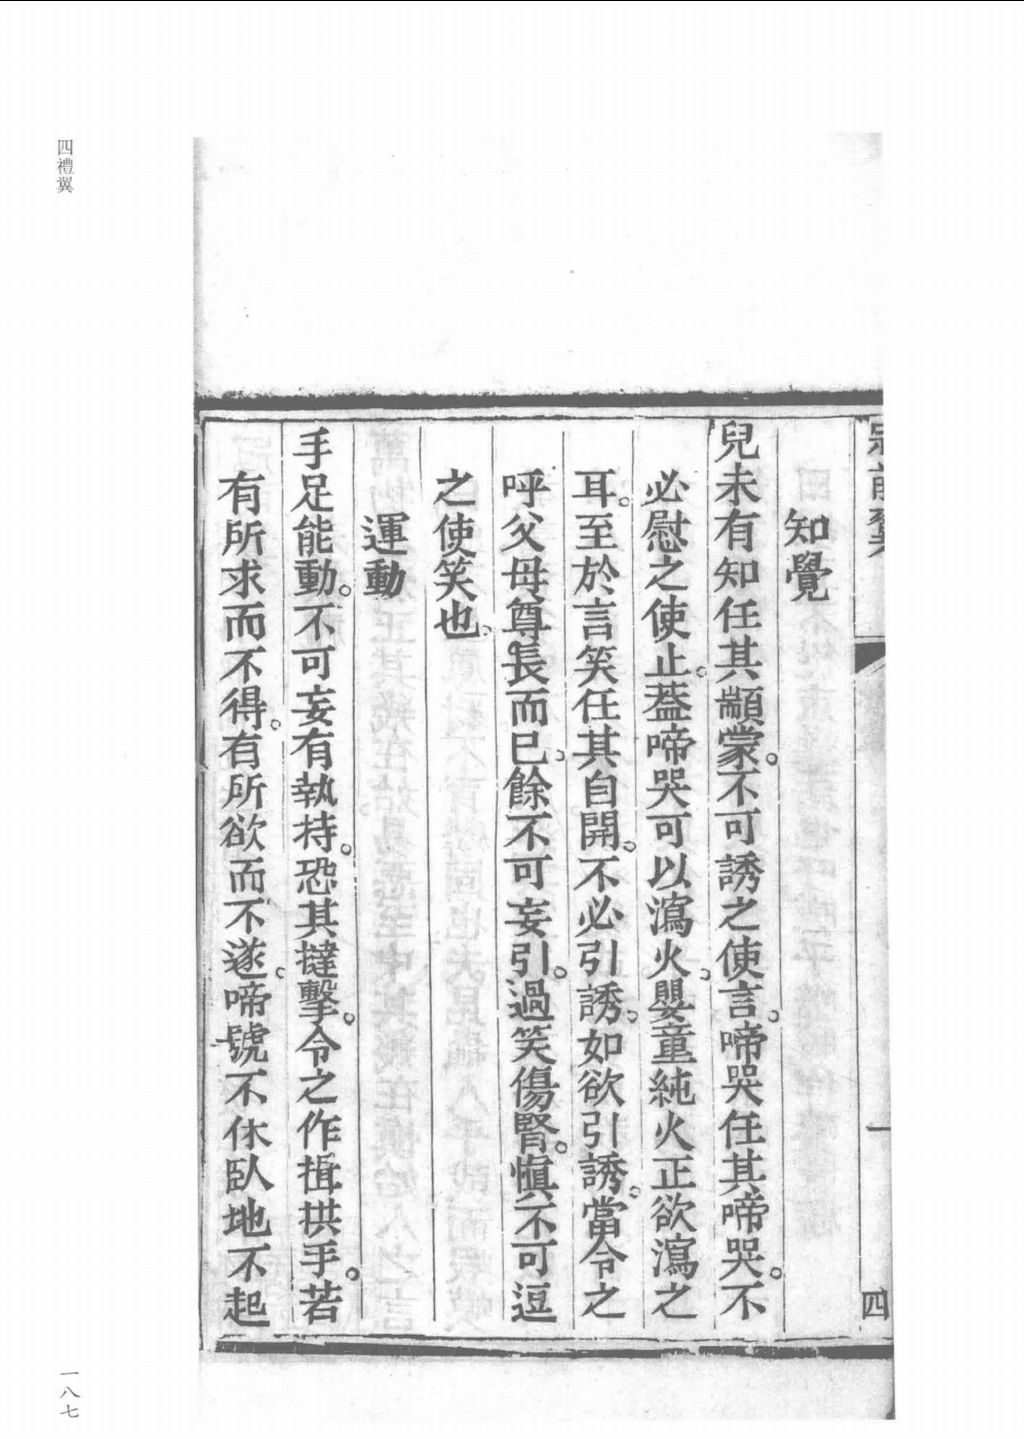 冠前翼
一
四
知覺
兒未有知任其顓蒙。不可誘之使言。啼哭任其啼哭。不
必慰之使止。葢啼哭可以瀉火。嬰童純火正欲瀉之
耳。至於言笑任其自開。不必引誘。如欲引誘。當令之
呼父母尊長而已。餘不可妄引。過笑傷腎。愼不可逗
之使笑也。
運動
手足能動。不可妄有執持。恐其撻擊。令之作揖拱手。若
有所求而不得。有所欲而不遂。啼號不休臥地不起
四禮翼
一八七